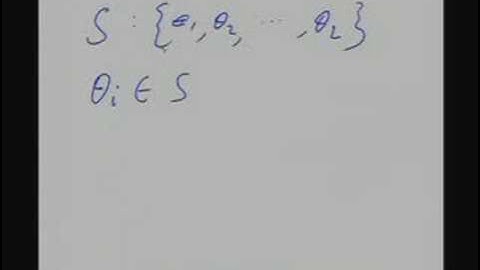 S : {θ₁, θ₂, ..., θ₂}
θᵢ ∈ S